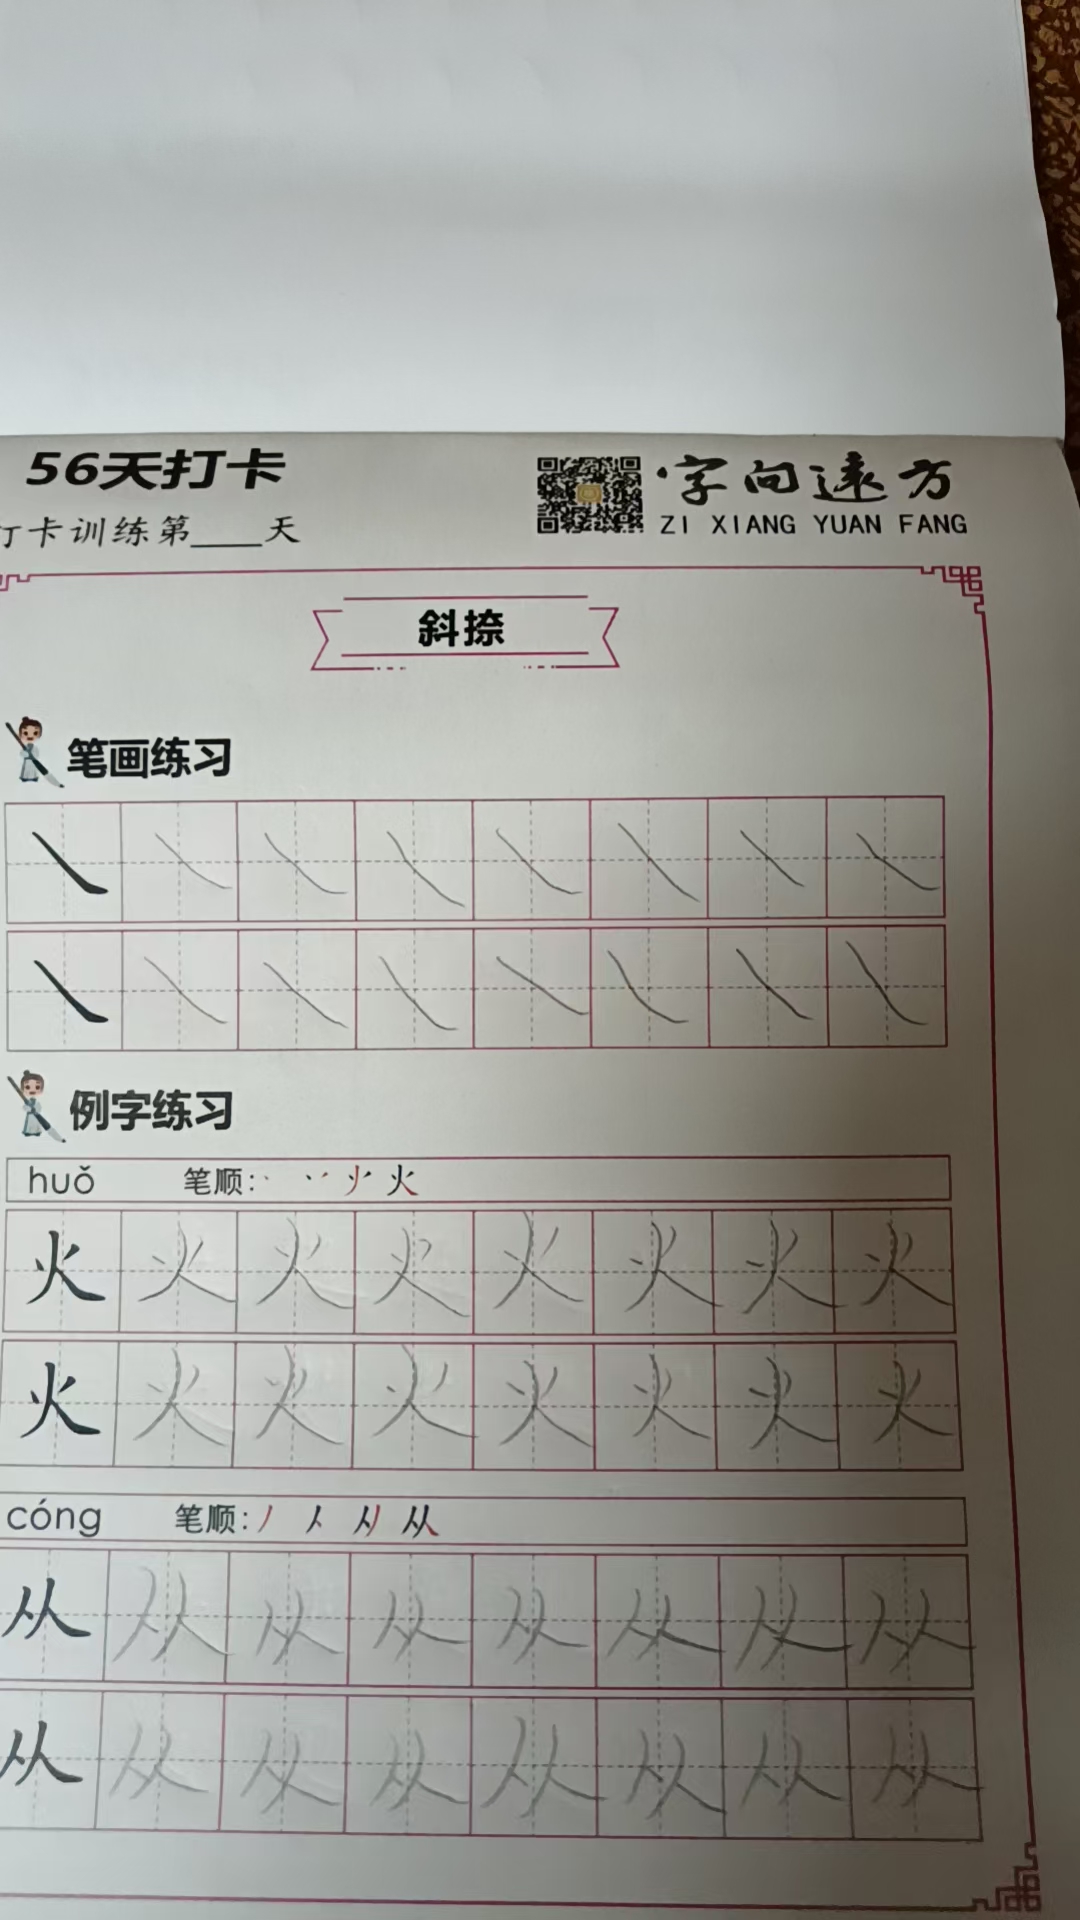 56天打卡
字向远方
打卡训练第____天
ZI XIANG YUAN FANG
斜捺
笔画练习
例字练习
huǒ 笔顺: 火
火 火 火 火 火 火 火 火
火 火 火 火 火 火 火 火
cóng 笔顺: 从
从 从 从 从 从 从 从 从
从 从 从 从 从 从 从 从